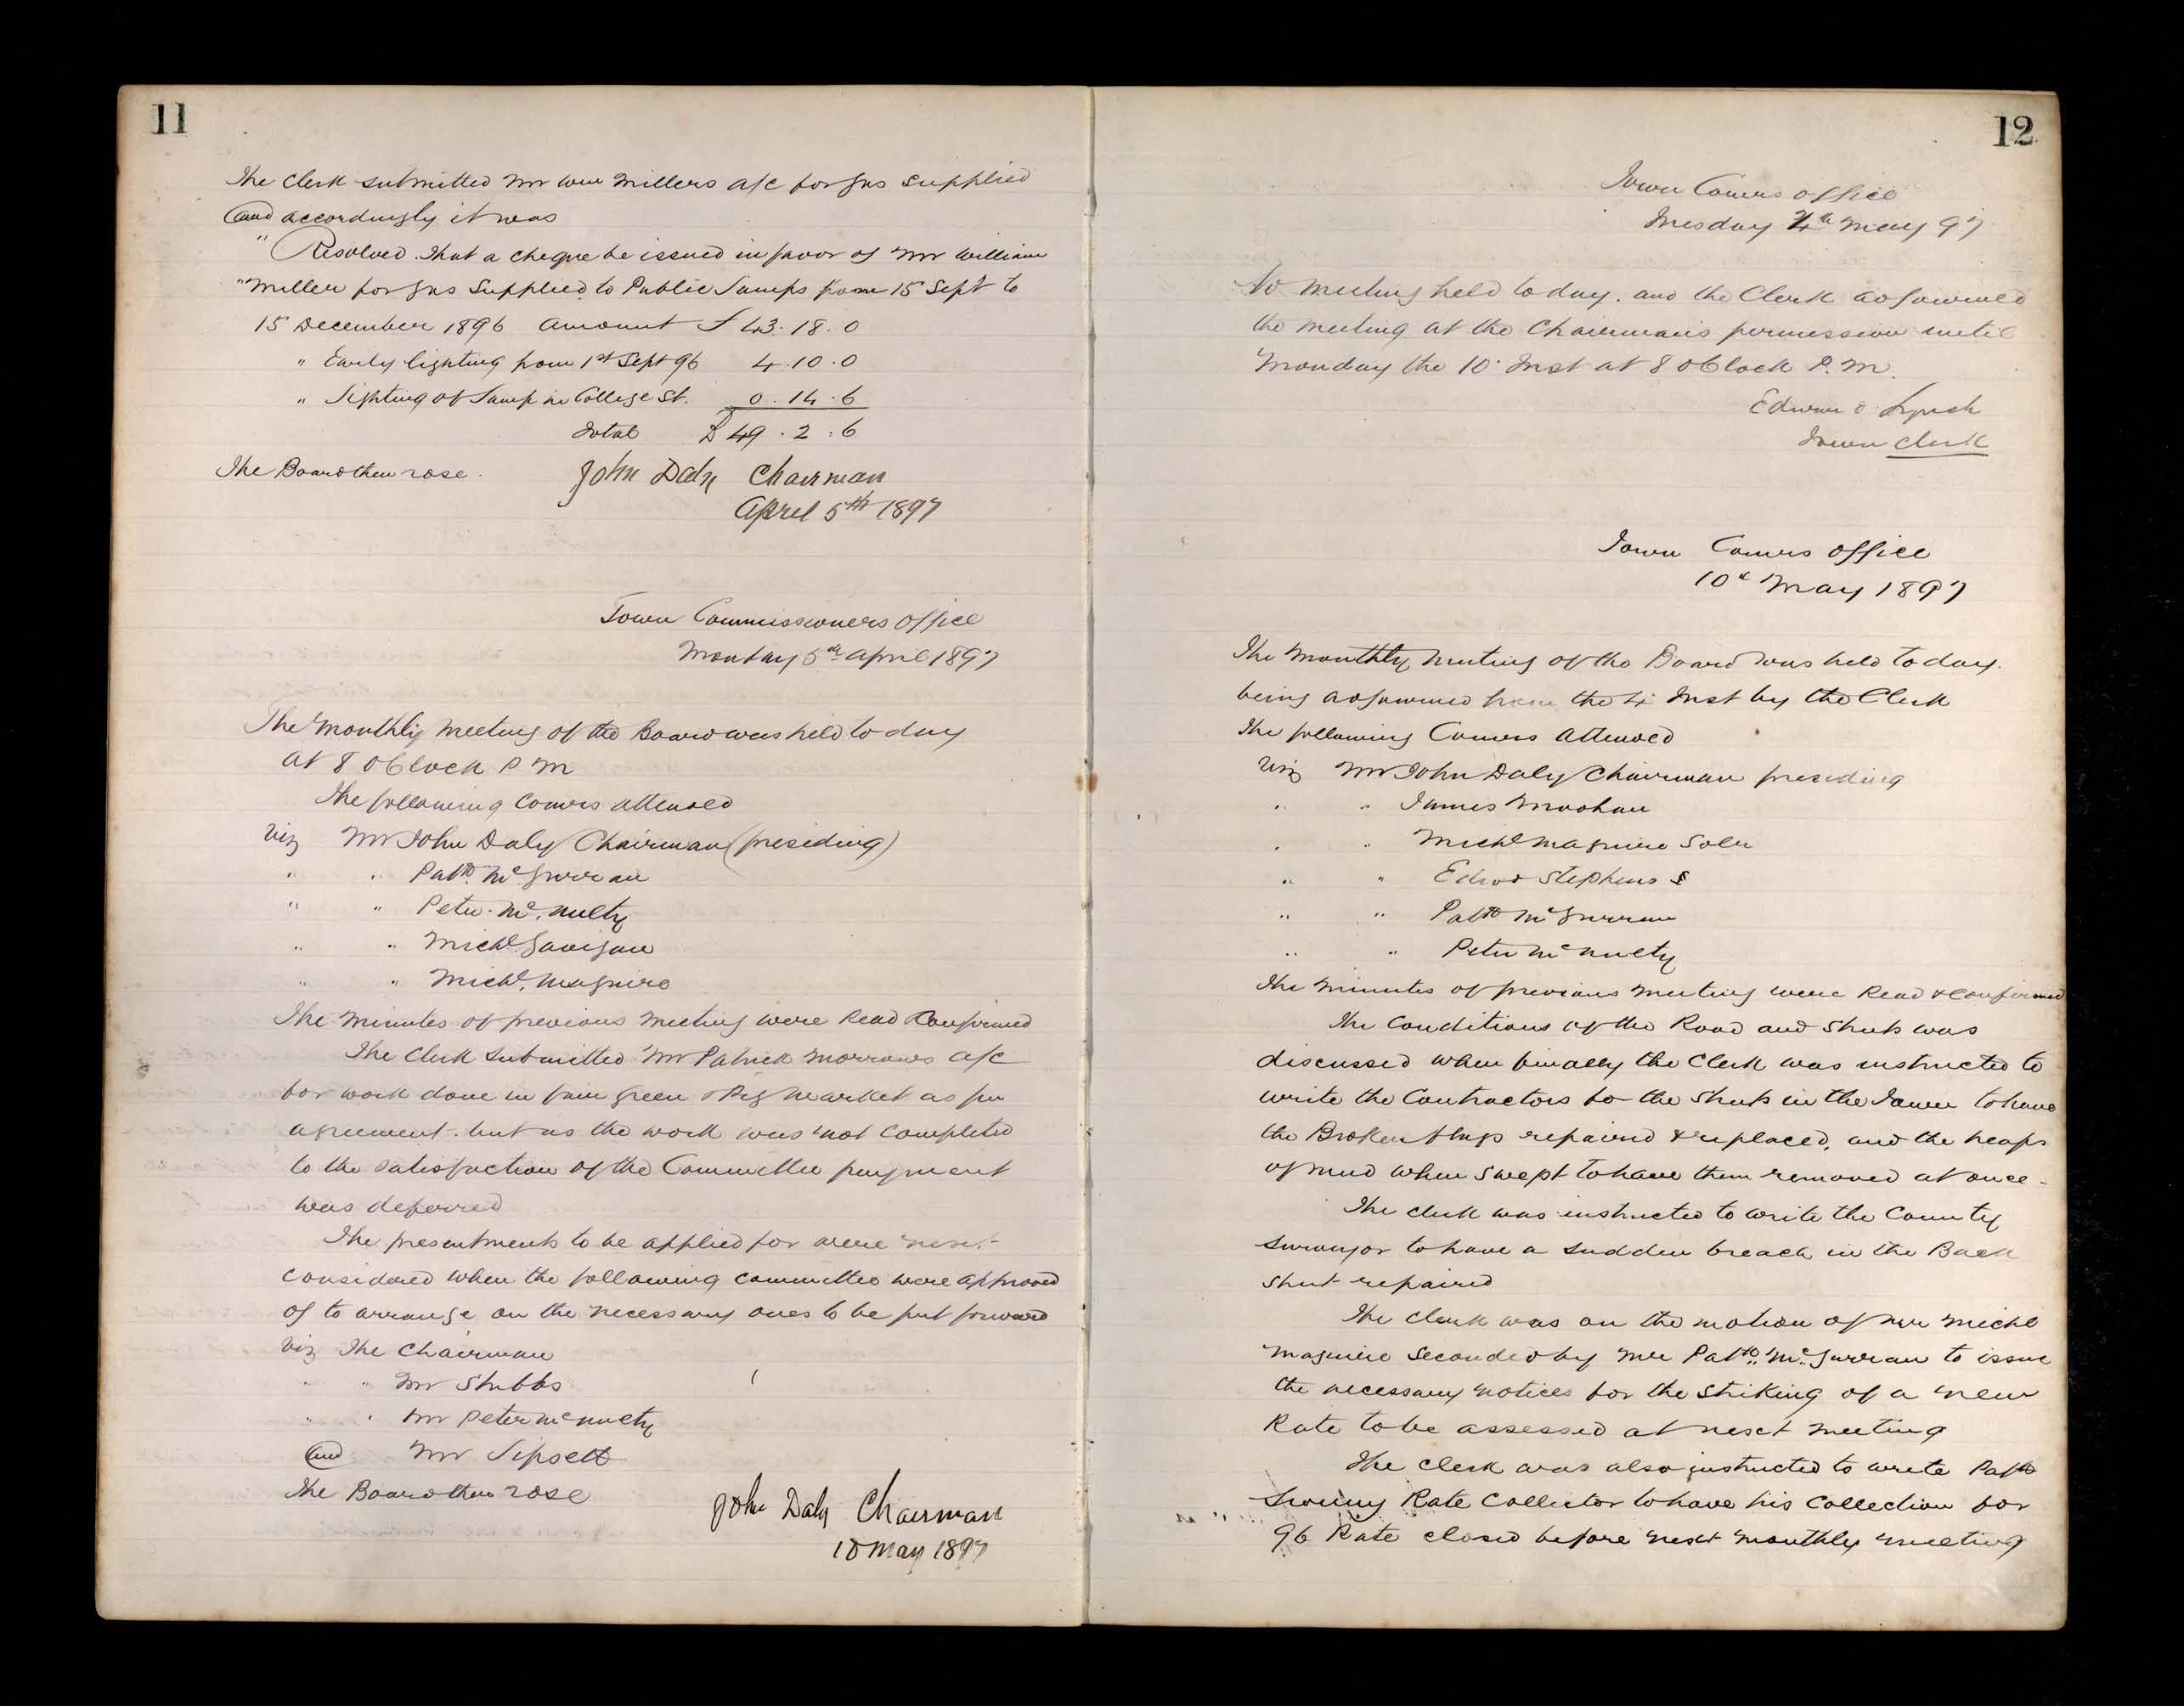 11
The Clerk submitted Mr Wm Millers a/c for gas supplied
and accordingly it was
" Resolved. That a cheque be issued in favor of Mr William
" Miller for gas supplied to Public Lamps from 15 Sept to
15 December 1896 amount £ 43. 18. 0
" Early lighting from 1st Sept 96 4. 10. 0
" Lighting of Lamp in College St. 0. 14. 6
Total £ 49. 2. 6
The Board then rose. John Daly Chairman
April 5th 1897
Town Commissioners Office
Monday 5th April 1897
The Monthly Meeting of the Board was held to day
at 8 oClock P M
The following Comrs attended
Viz Mr John Daly Chairman (presiding)
" " Patk McGurran
" " Peter McNulty
" " Michl Gavigan
" " Michl Maguire
The Minutes of previous Meeting were Read Confirmed
The Clerk submitted Mr Patrick Morrows a/c
for work done in fair green & Pig Market as per
agreement. but as the work was not completed
to the satisfaction of the Committee payment
was deferred
The presentments to be applied for were next
considered when the following committee were approved
of to arrange on the necessary ones to be put forward
Viz The Chairman
" " Mr Stubbs
" " Mr Peter McNulty
and Mr Lipsett
The Board then rose
John Daly Chairman
10 May 1897
12
Town Comrs Office
Tuesday 4th May 97
No meeting held to day. and the Clerk adjourned
the meeting at the Chairmans permission until
Monday the 10 Inst at 8 oClock P.M.
Edward Lynch
Town Clerk
Town Comrs Office
10th May 1897
The Monthly Meeting of the Board was held to day.
being adjourned from the 4 Inst by the Clerk
The following Comrs attended
Viz Mr John Daly Chairman presiding
" " James Moohan
" " Michl Maguire Solr
" " Edwd Stephens
" " Patk McGurran
" " Peter McNulty
The Minutes of previous Meeting were Read & Confirmed
The Conditions of the Road and Streets was
discussed when finally the Clerk was instructed to
write the Contractors for the Streets in the Town to have
the Broken flags repaired & replaced, and the heaps
of mud when swept to have them removed at once.
The clerk was instructed to write the County
Surveyor to have a sudden breach in the Back
Street repaired
The Clerk was on the motion of Mr Michl
Maguire Seconded by Mr Patk McGurran to issue
the necessary notices for the striking of a new
Rate to be assessed at next meeting
The clerk was also instructed to write Patk
Rate Collector to have his Collection for
96 Rate closed before next monthly meeting